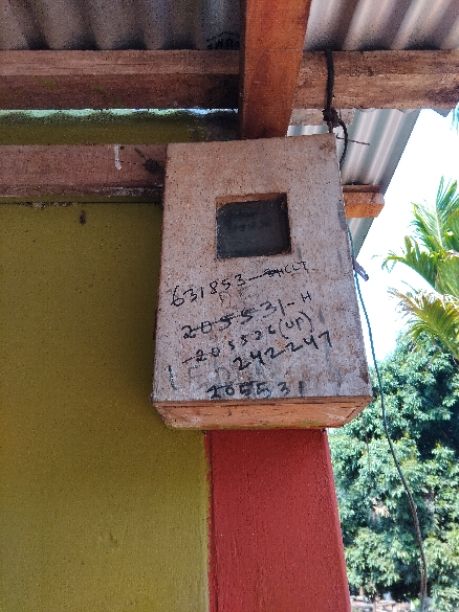 631853-
205531-H
-205526(UP)
242247
205531